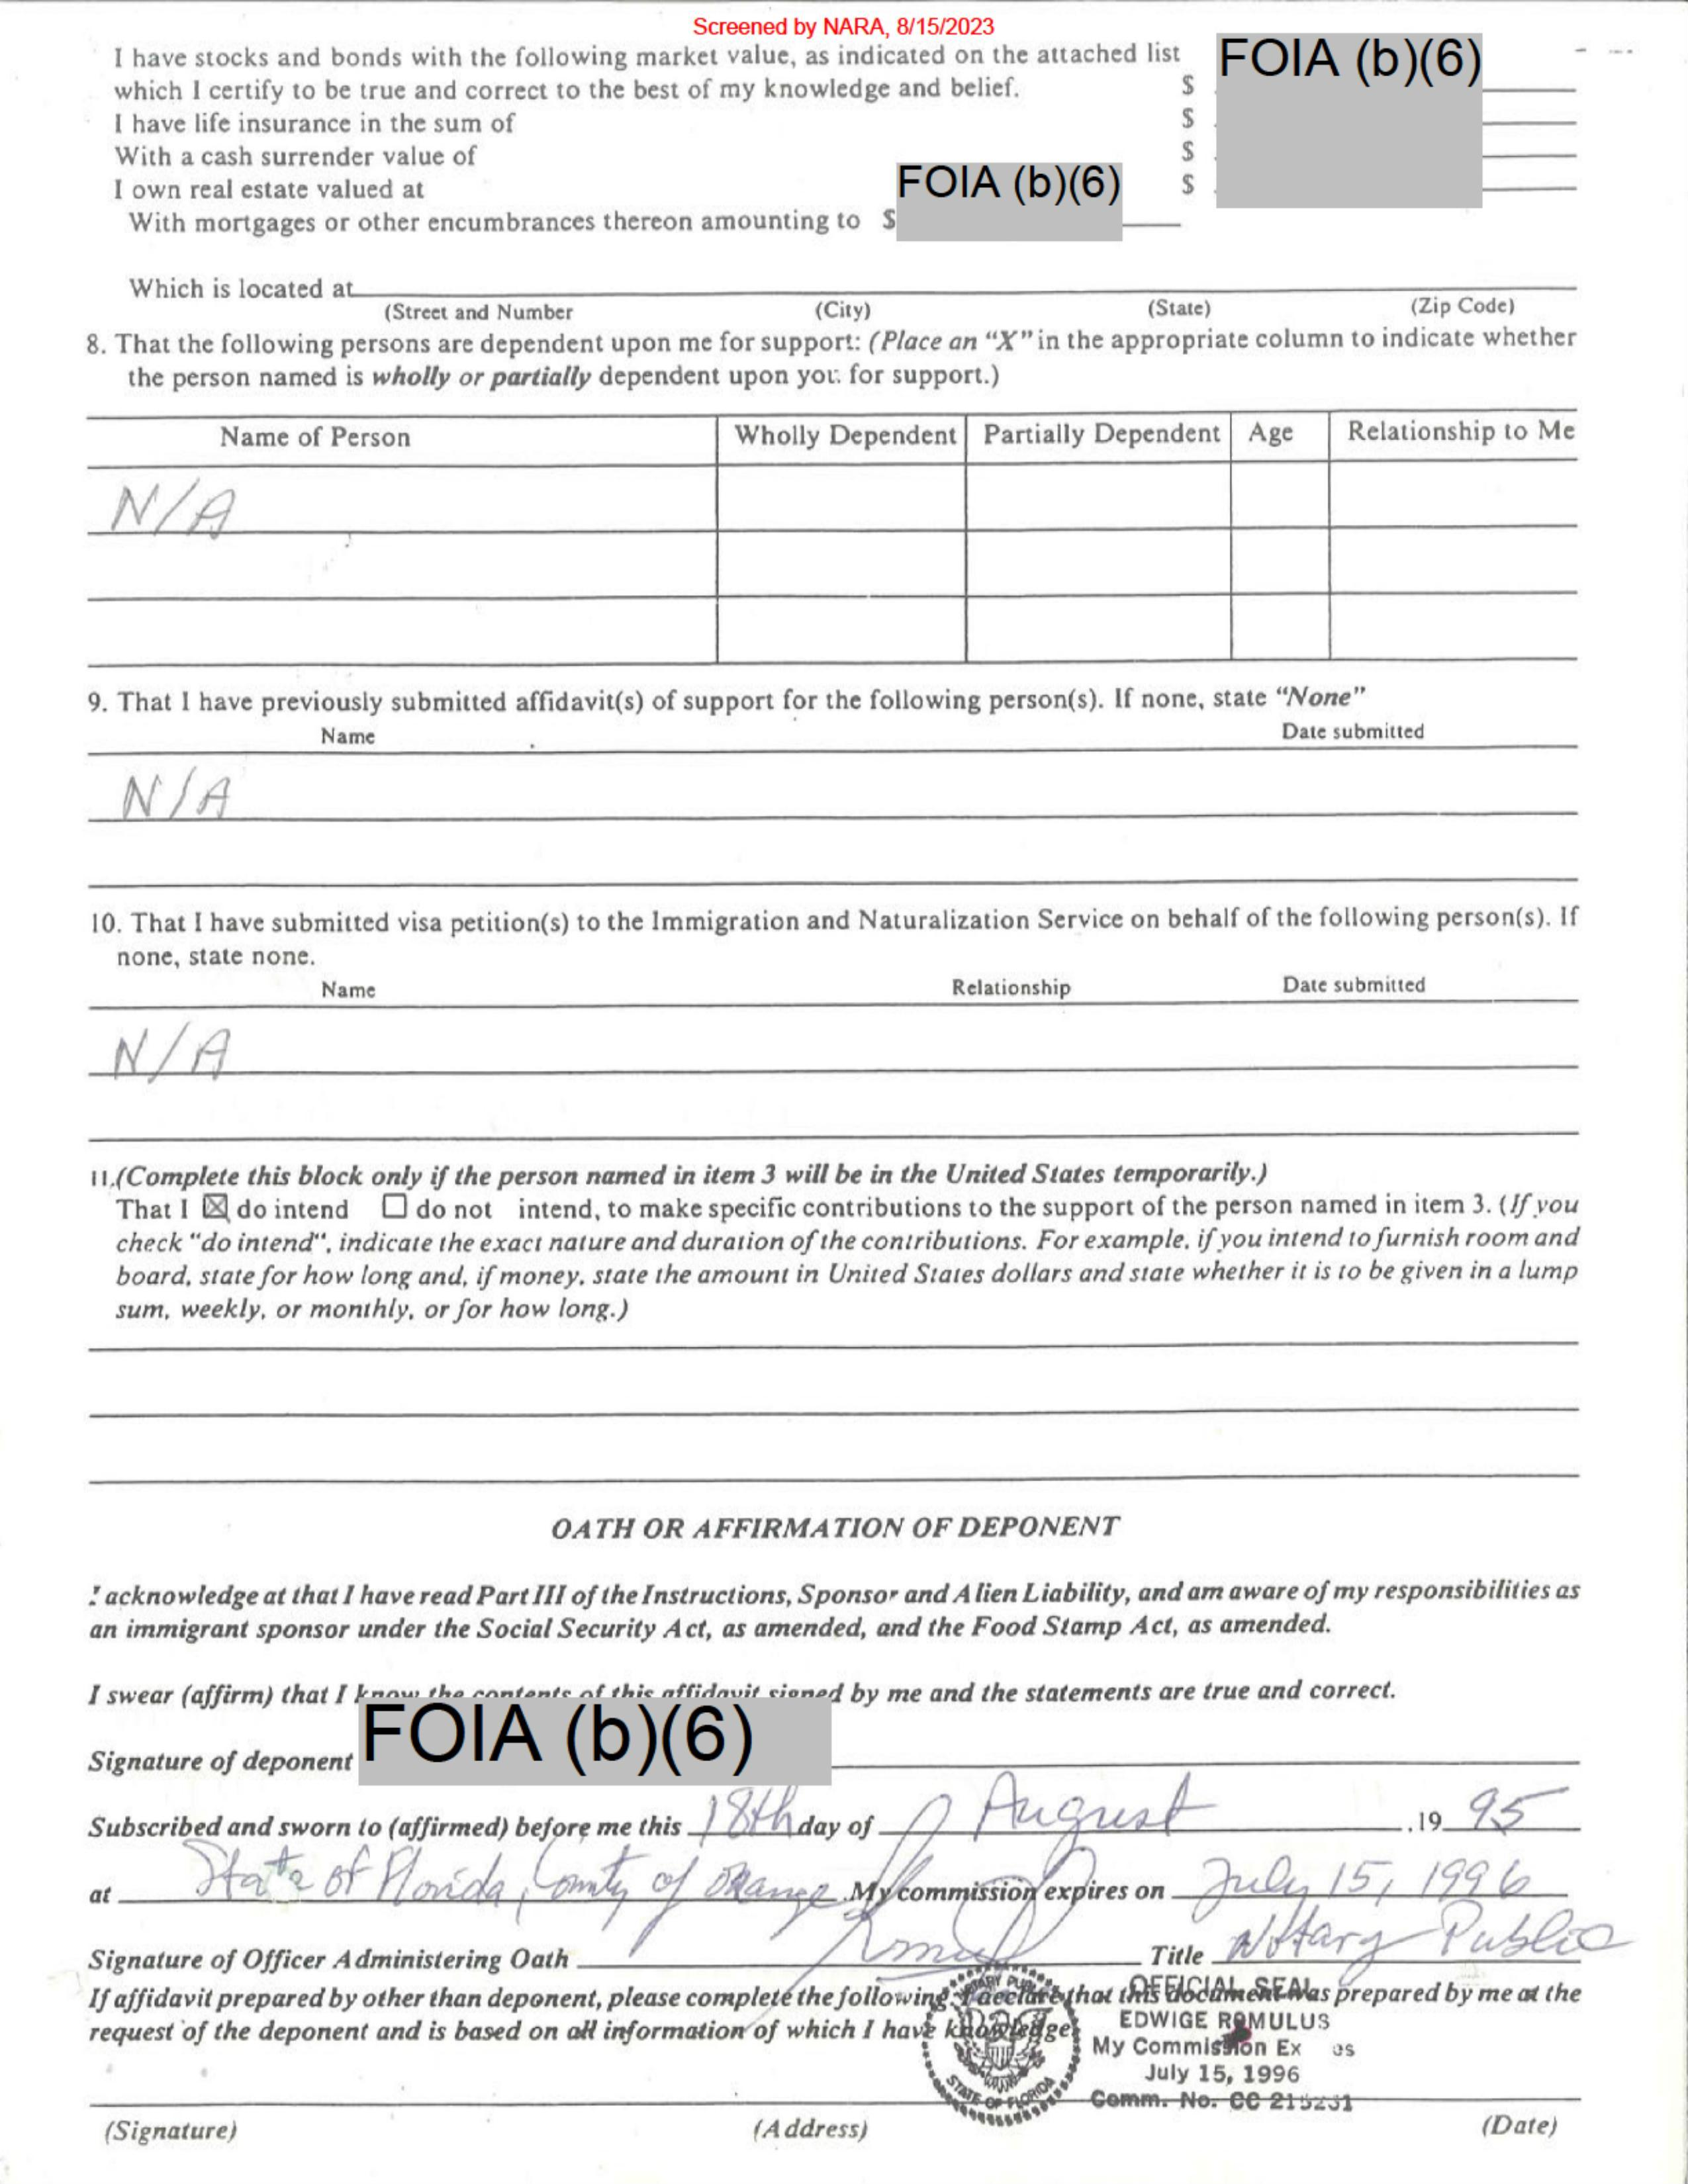 Screened by NARA, 8/15/2023
I have stocks and bonds with the following market value, as indicated on the attached list
which I certify to be true and correct to the best of my knowledge and belief. $ FOIA (b)(6)
I have life insurance in the sum of $
With a cash surrender value of $
I own real estate valued at $
With mortgages or other encumbrances thereon amounting to $ FOIA (b)(6)
Which is located at
(Street and Number (City) (State) (Zip Code)
8. That the following persons are dependent upon me for support: (Place an “X” in the appropriate column to indicate whether
the person named is wholly or partially dependent upon you for support.)
Name of Person Wholly Dependent Partially Dependent Age Relationship to Me
N/A
9. That I have previously submitted affidavit(s) of support for the following person(s). If none, state “None”
Name Date submitted
N/A
10. That I have submitted visa petition(s) to the Immigration and Naturalization Service on behalf of the following person(s). If
none, state none.
Name Relationship Date submitted
N/A
11.(Complete this block only if the person named in item 3 will be in the United States temporarily.)
That I ☒ do intend ☐ do not intend, to make specific contributions to the support of the person named in item 3. (If you
check "do intend", indicate the exact nature and duration of the contributions. For example, if you intend to furnish room and
board, state for how long and, if money, state the amount in United States dollars and state whether it is to be given in a lump
sum, weekly, or monthly, or for how long.)
OATH OR AFFIRMATION OF DEPONENT
I acknowledge at that I have read Part III of the Instructions, Sponsor and Alien Liability, and am aware of my responsibilities as
an immigrant sponsor under the Social Security Act, as amended, and the Food Stamp Act, as amended.
I swear (affirm) that I know the contents of this affidavit signed by me and the statements are true and correct.
Signature of deponent FOIA (b)(6)
Subscribed and sworn to (affirmed) before me this 18th day of August ,19 95
at State of Florida, County of Orange . My commission expires on July 15, 1996
Signature of Officer Administering Oath Title Notary Public
If affidavit prepared by other than deponent, please complete the following. I declare that this document was prepared by me at the
request of the deponent and is based on all information of which I have knowledge.
NOTARY PUBLIC
STATE OF FLORIDA
OFFICIAL SEAL
EDWIGE ROMULUS
My Commission Ex es
July 15, 1996
Comm. No. CC 215231
(Signature) (Address) (Date)